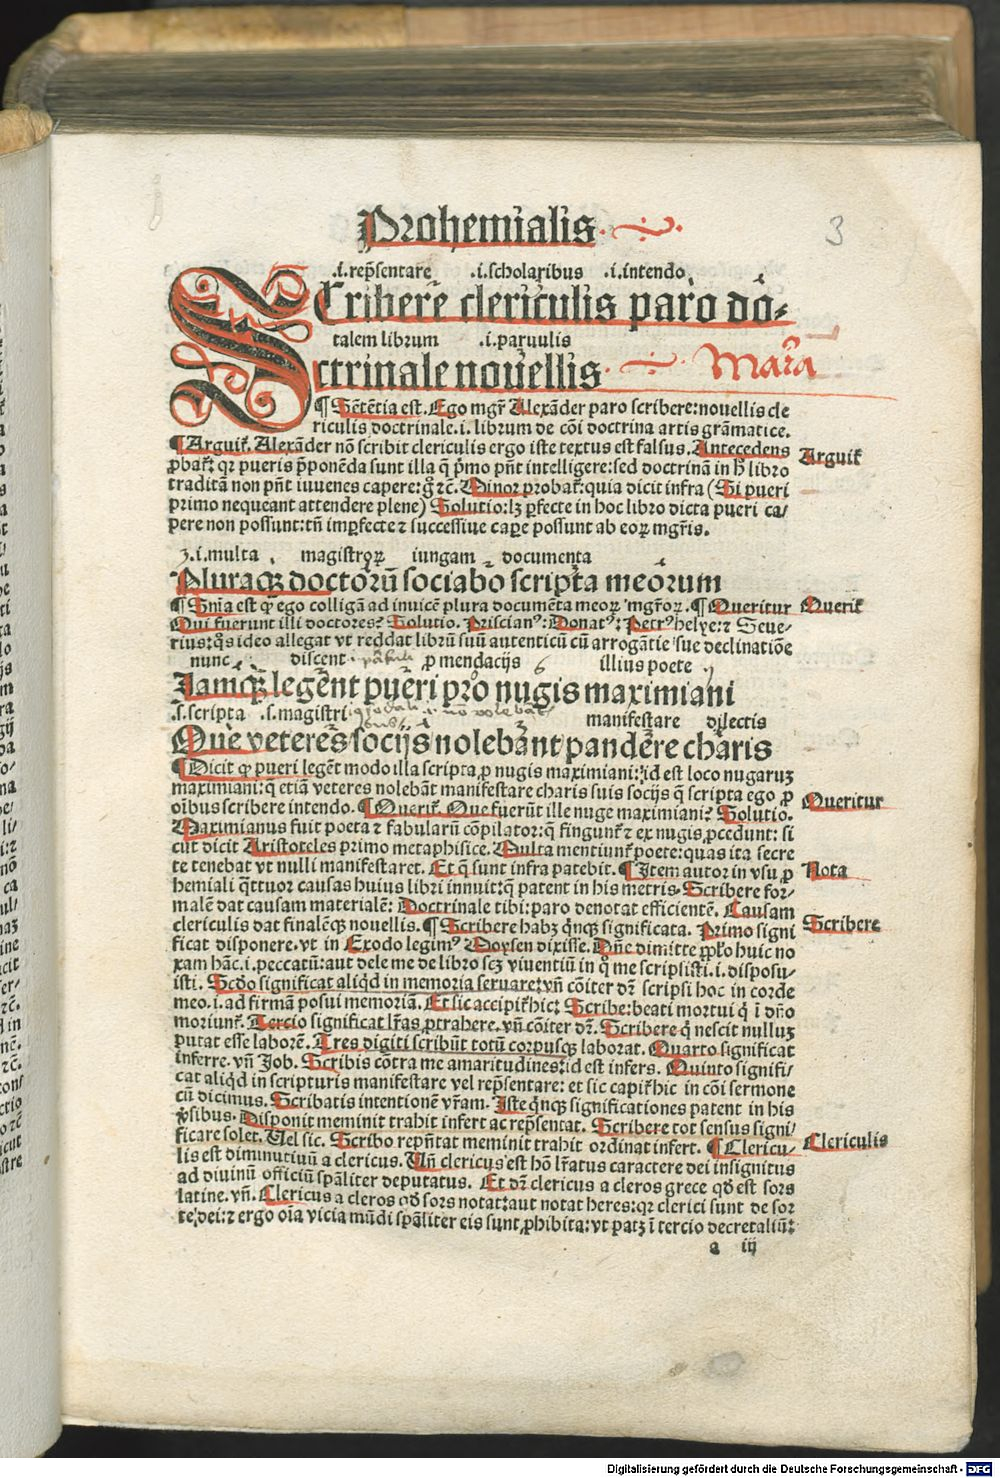 Prohemialis
3
.i.rep̄sentare .i.scholaribus .i.intendo
SCribere clericulis paro do-
talem librum .i.paruulis
ctrinale nouellis
Mara
¶ Sētētia est. Ego mgr̄ Alexāder paro scribere:nouellis cle
riculis doctrinale.i. librum de cōi doctrina artis grāmatice.
¶ Arguit̄. Alexāder nō scribit clericulis ergo iste textus est falsus. Antecedens
Arguit̄
ꝓbat̄: qꝛ pueris p̄ponēda sunt illa q̄ p̄mo pn̄t intelligere: sed doctrinā in h̄ libro
traditā non pn̄t iuuenes capere: g̊ ꝛc̄. Minor probat̄: quia dicit infra (Si pueri
primo nequeant attendere plene) Solutio: lꝫ ꝑfecte in hoc libro dicta pueri ca/
pere non possunt: tn̄ imꝑfecte ⁊ successiue caꝑe possunt ab eoꝝ mgr̄is.
ꝫ.i.multa magistroꝝ iungam documenta
Pluraqꝫ doctorū sociabo scripta meorum
¶ Snīa est qꝙ ego colligā ad inuicē plura documēta meoꝝ mgr̄oꝝ. ¶ Queritur
Querit̄
Qui fuerunt illi doctores? Solutio. Priscianꝰ: Donatꝰ: Petrꝰ helye: ⁊ Seue-
rius: q̊s ideo allegat vt reddat librū suū autenticū cū arrogātie sue declinatiōe
nunc discent ꝓ mendacijs illius poete
Iamqꝫ legent pueri pro nugis maximiani
.s.scripta .s.magistri manifestare dilectis
Que veteres socijs nolebant pandere charis
¶ Dicit qꝙ pueri legēt modo illa scripta ꝓ nugis maximiani: id est loco nugaruꝫ
maximiani: q̄ etiā veteres nolebāt manifestare charis suis socijs q̄ scripta ego ꝓ
oībus scribere intendo. ¶ Querit̄. Que fuerūt ille nuge maximiani? Solutio.
Queritur
Maximianus fuit poeta ⁊ fabularū cōpilator: q̄ fingunt̄ ⁊ ex nugis ꝓcedunt: si
cut dicit Aristoteles primo metaphisice. Multa mentiunt̄ poete: quas ita secre
te tenebat vt nulli manifestaret. Et q̄ sunt infra patebit. ¶ Item autor in vsu ꝓ
Nota
hemiali q̄ttuor causas huius libri innuit: q̄ patent in his metris. Scribere for-
malē dat causam materialē: Doctrinale tibi: paro denotat efficientē. Causam
clericulis dat finalēqꝫ nouellis. ¶ Scribere habꝫ q̇nqꝫ significata. Primo signi
Scribere
ficat disponere. vt in Exodo legimꝰ Moysen dixisse. Dn̄e dimitte pp̄lo huic no
xam hāc.i. peccatū: aut dele me de libro scꝫ viuentiū in q̊ me scriplisti.i. disposu/
isti. Scdo significat aliq̇d in memoria seruare: vn̄ cōiter dꝛ̄ scripsi hoc in corde
meo.i. ad firmā posui memoriā. Et sic accipit̄ hic: Scribe: beati mortui q̇ ī dn̄o
moriunt̄. Tercio significat lr̄as ꝓtrahere. vn̄ cōiter dꝛ̄. Scribere q̇ nescit nulluꝫ
putat esse laborē. Tres digiti scribūt totū corpusqꝫ laborat. Quarto significat
inferre. vn̄ Job. Scribis cōtra me amaritudines: id est infers. Quinto signifi-
cat aliq̇d in scripturis manifestare vel rep̄sentare: et sic capit̄ hic in cōi sermone
cū dicimus. Scribatis intentionē vr̄am. Iste q̇nqꝫ significationes patent in his
ꝟsibus. Disponit meminit trahit infert ac rep̄sentat. Scribere tot sensus signi/
ficare solet. Uel sic. Scribo rep̄n̄tat meminit trahit ordinat infert. ¶ Clericu/
Clericulis
lis est diminutiuū a clericus. Un̄ clericus est hō lr̄atus caractere dei insignitus
ad diuinū officiū sp̄aliter deputatus. Et dꝛ̄ clericus a cleros grece qd̄ est sors
latine. vn̄. Clericus a cleros qd̄ sors notat: aut notat heres: qꝛ clerici sunt de sor
te dei: ⁊ ergo oīa vicia mūdi sp̄aliter eis sunt ꝓhibita: vt patꝫ ī tercio decretaliū:
a iij
Digitalisierung gefördert durch die Deutsche Forschungsgemeinschaft - DFG